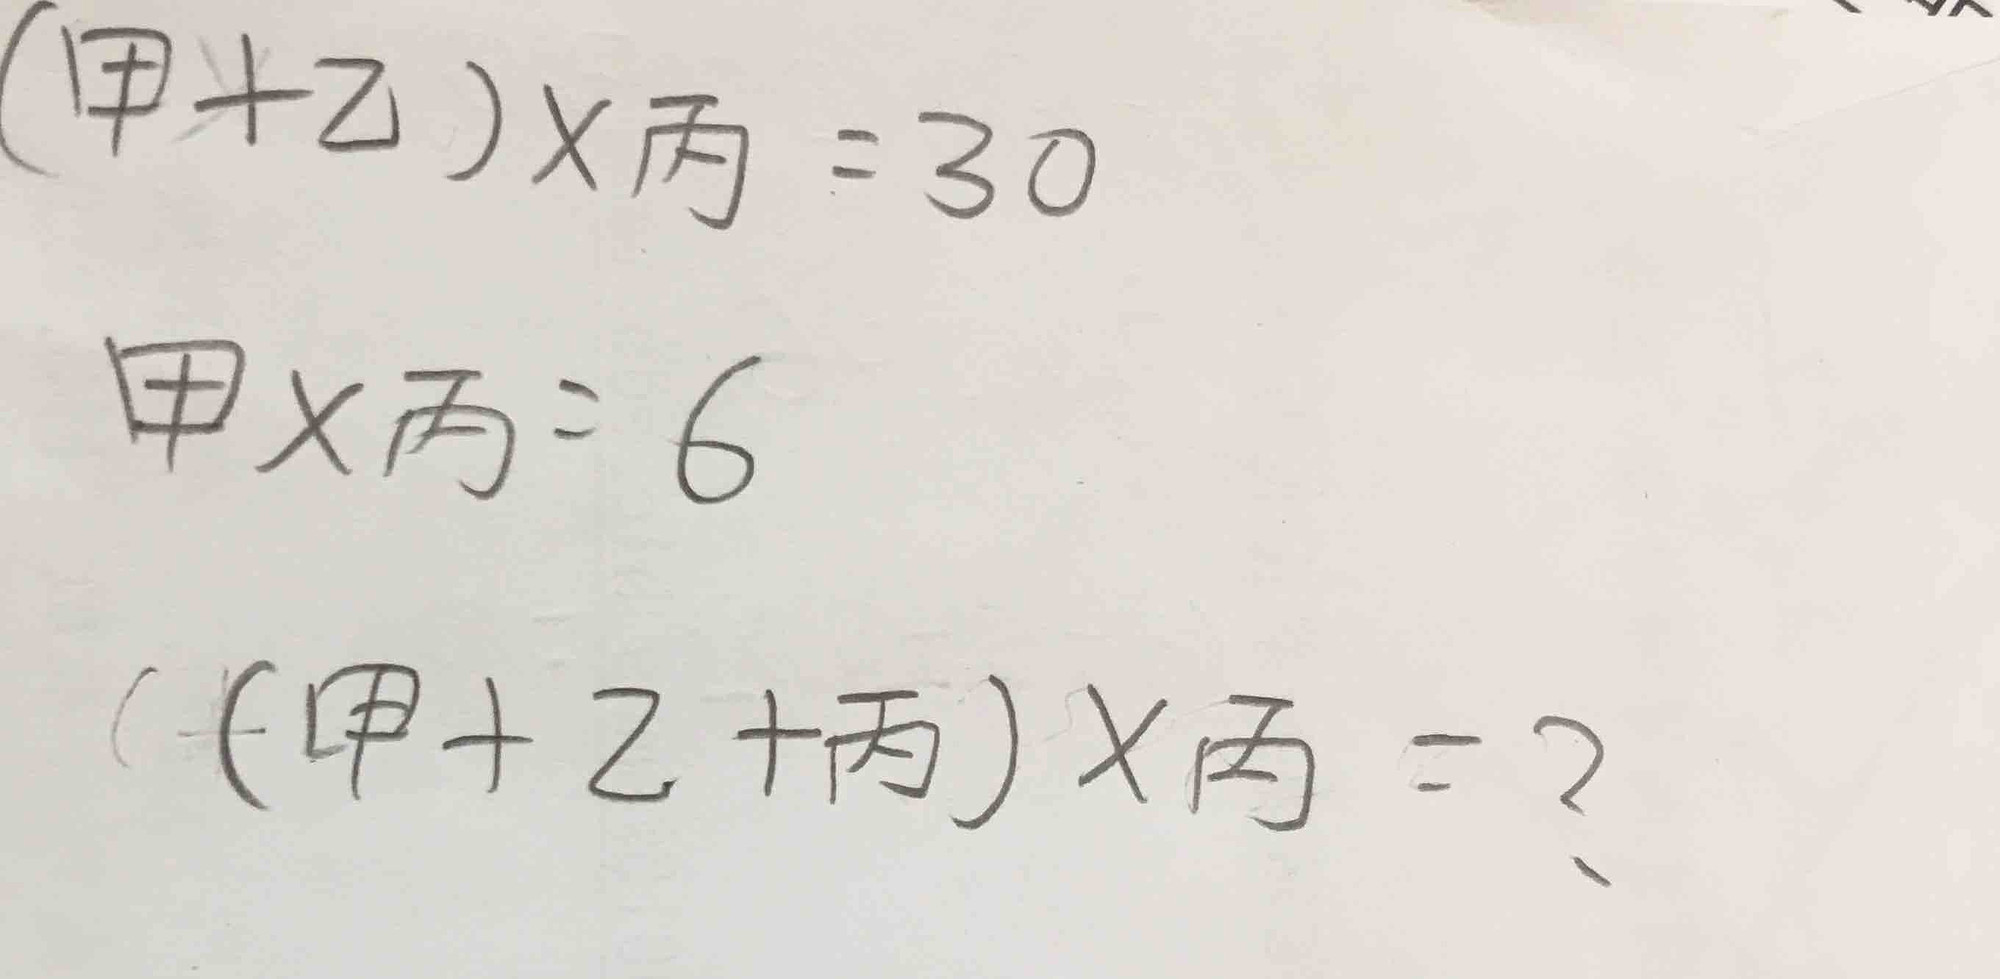 (甲+乙)×丙=30
甲×丙=6
(甲+乙+丙)×丙=?